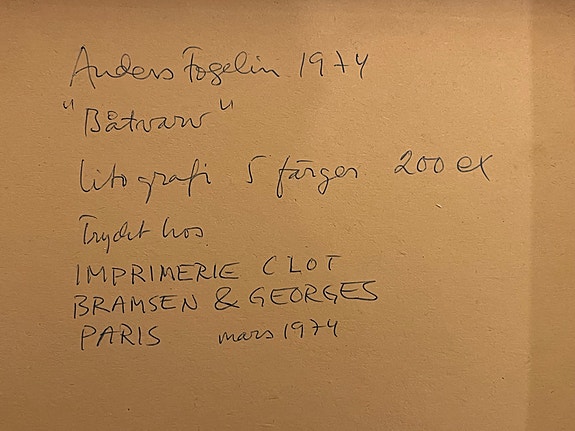 Anders Fogelin 1974
"Båtvarv"
litografi 5 färger 200 ex
Tryckt hos
IMPRIMERIE CLOT
BRAMSEN & GEORGES
PARIS mars 1974